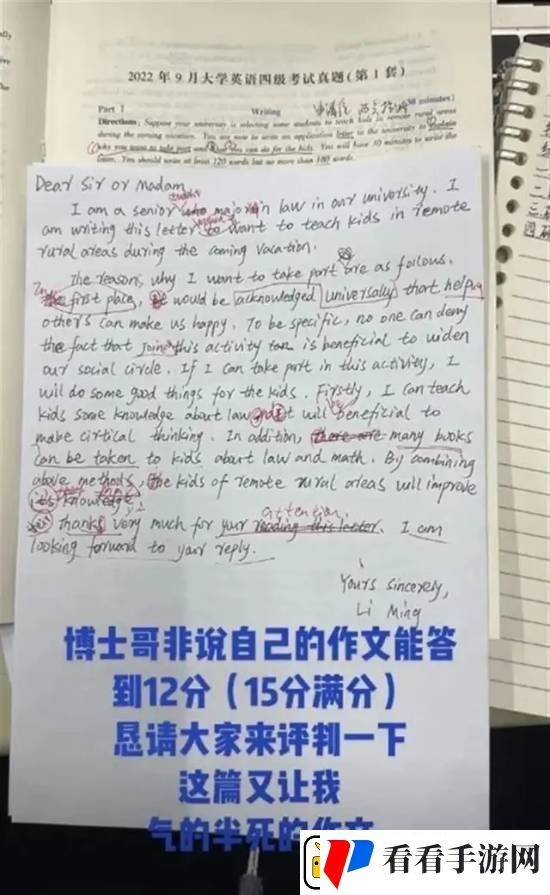 2022年9月大学英语四级考试真题(第1套)
Part I Writing (30 minutes)
Directions: Suppose your university is selecting some students to teach kids in remote rural areas
during the coming vacation. You are now to write an application letter to the university to explain
why you want to take part and what you can do for the kids. You will have 30 minutes to write the
letter. You should write at least 120 words but no more than 180 words.
Dear Sir or Madam
I am a senior who major in law in our university. I
am writing this letter to want to teach kids in remote
rural areas during the coming vacation.
The reasons why I want to take part are as follows.
The first place, would be acknowledged universally that helping
others can make us happy. To be specific, no one can deny
the fact that join this activity is beneficial to widen
our social circle. If I can take part in this activity, I
will do some good things for the kids. Firstly, I can teach
kids some knowledge about law and it will beneficial to
make cirtical thinking. In addition, there are many books
can be taken to kids about law and math. By combining
above methods, the kids of remote rural areas will improve
it's knowledge.
attention.
thanks very much for your reading this letter. I am
looking forward to your reply.
Yours sincerely,
Li Ming
博士哥非说自己的作文能答
到12分(15分满分)
恳请大家来评判一下
这篇又让我
气的半死的作文
看看手游网